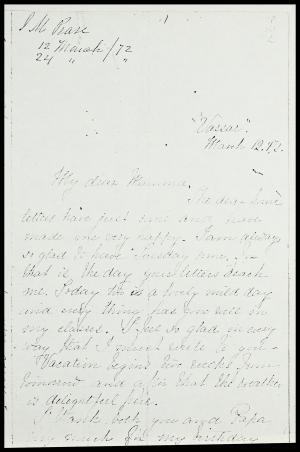 J M Pease
12 March /72
24 " "
"Vassar".
March 12. 72.
My dear Mamma.
The dear home
letters have just come and have
made me very happy. I am always
so glad to have Tuesday come, for
that is the day your letters reach
me. Today is a lovely mild day
and every thing has gone well in
my classes. I feel so glad in every
way that I must write to you.
Vacation begins two weeks from
tomorrow and after that the weather
is delightful here.
I thank both you and Papa
very much for my birthday